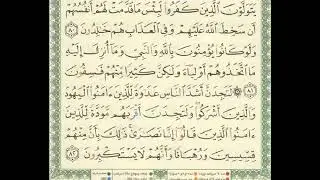 يَتَوَلَّوْنَ الَّذِينَ كَفَرُوا لَبِئْسَ مَا قَدَّمَتْ لَهُمْ أَنفُسُهُمْ
أَن سَخِطَ اللَّهُ عَلَيْهِمْ وَفِي الْعَذَابِ هُمْ خَالِدُونَ ٨٠
وَلَوْ كَانُوا يُؤْمِنُونَ بِاللَّهِ وَالنَّبِيِّ وَمَا أُنزِلَ إِلَيْهِ
مَا اتَّخَذُوهُمْ أَوْلِيَاءَ وَلَٰكِنَّ كَثِيرًا مِّنْهُمْ فَاسِقُونَ
٨١ لَتَجِدَنَّ أَشَدَّ النَّاسِ عَدَاوَةً لِّلَّذِينَ آمَنُوا الْيَهُودَ
وَالَّذِينَ أَشْرَكُوا وَلَتَجِدَنَّ أَقْرَبَهُم مَّوَدَّةً لِّلَّذِينَ
آمَنُوا الَّذِينَ قَالُوا إِنَّا نَصَارَىٰ ذَٰلِكَ بِأَنَّ مِنْهُمْ
قِسِّيسِينَ وَرُهْبَانًا وَأَنَّهُمْ لَا يَسْتَكْبِرُونَ ٨٢